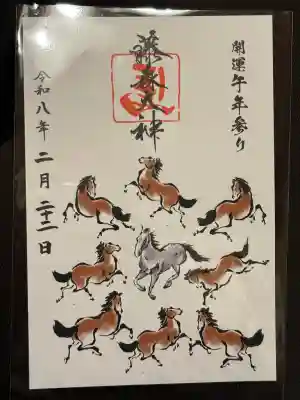 開運午年参り
藤森大神
令和八年
二月二十二日